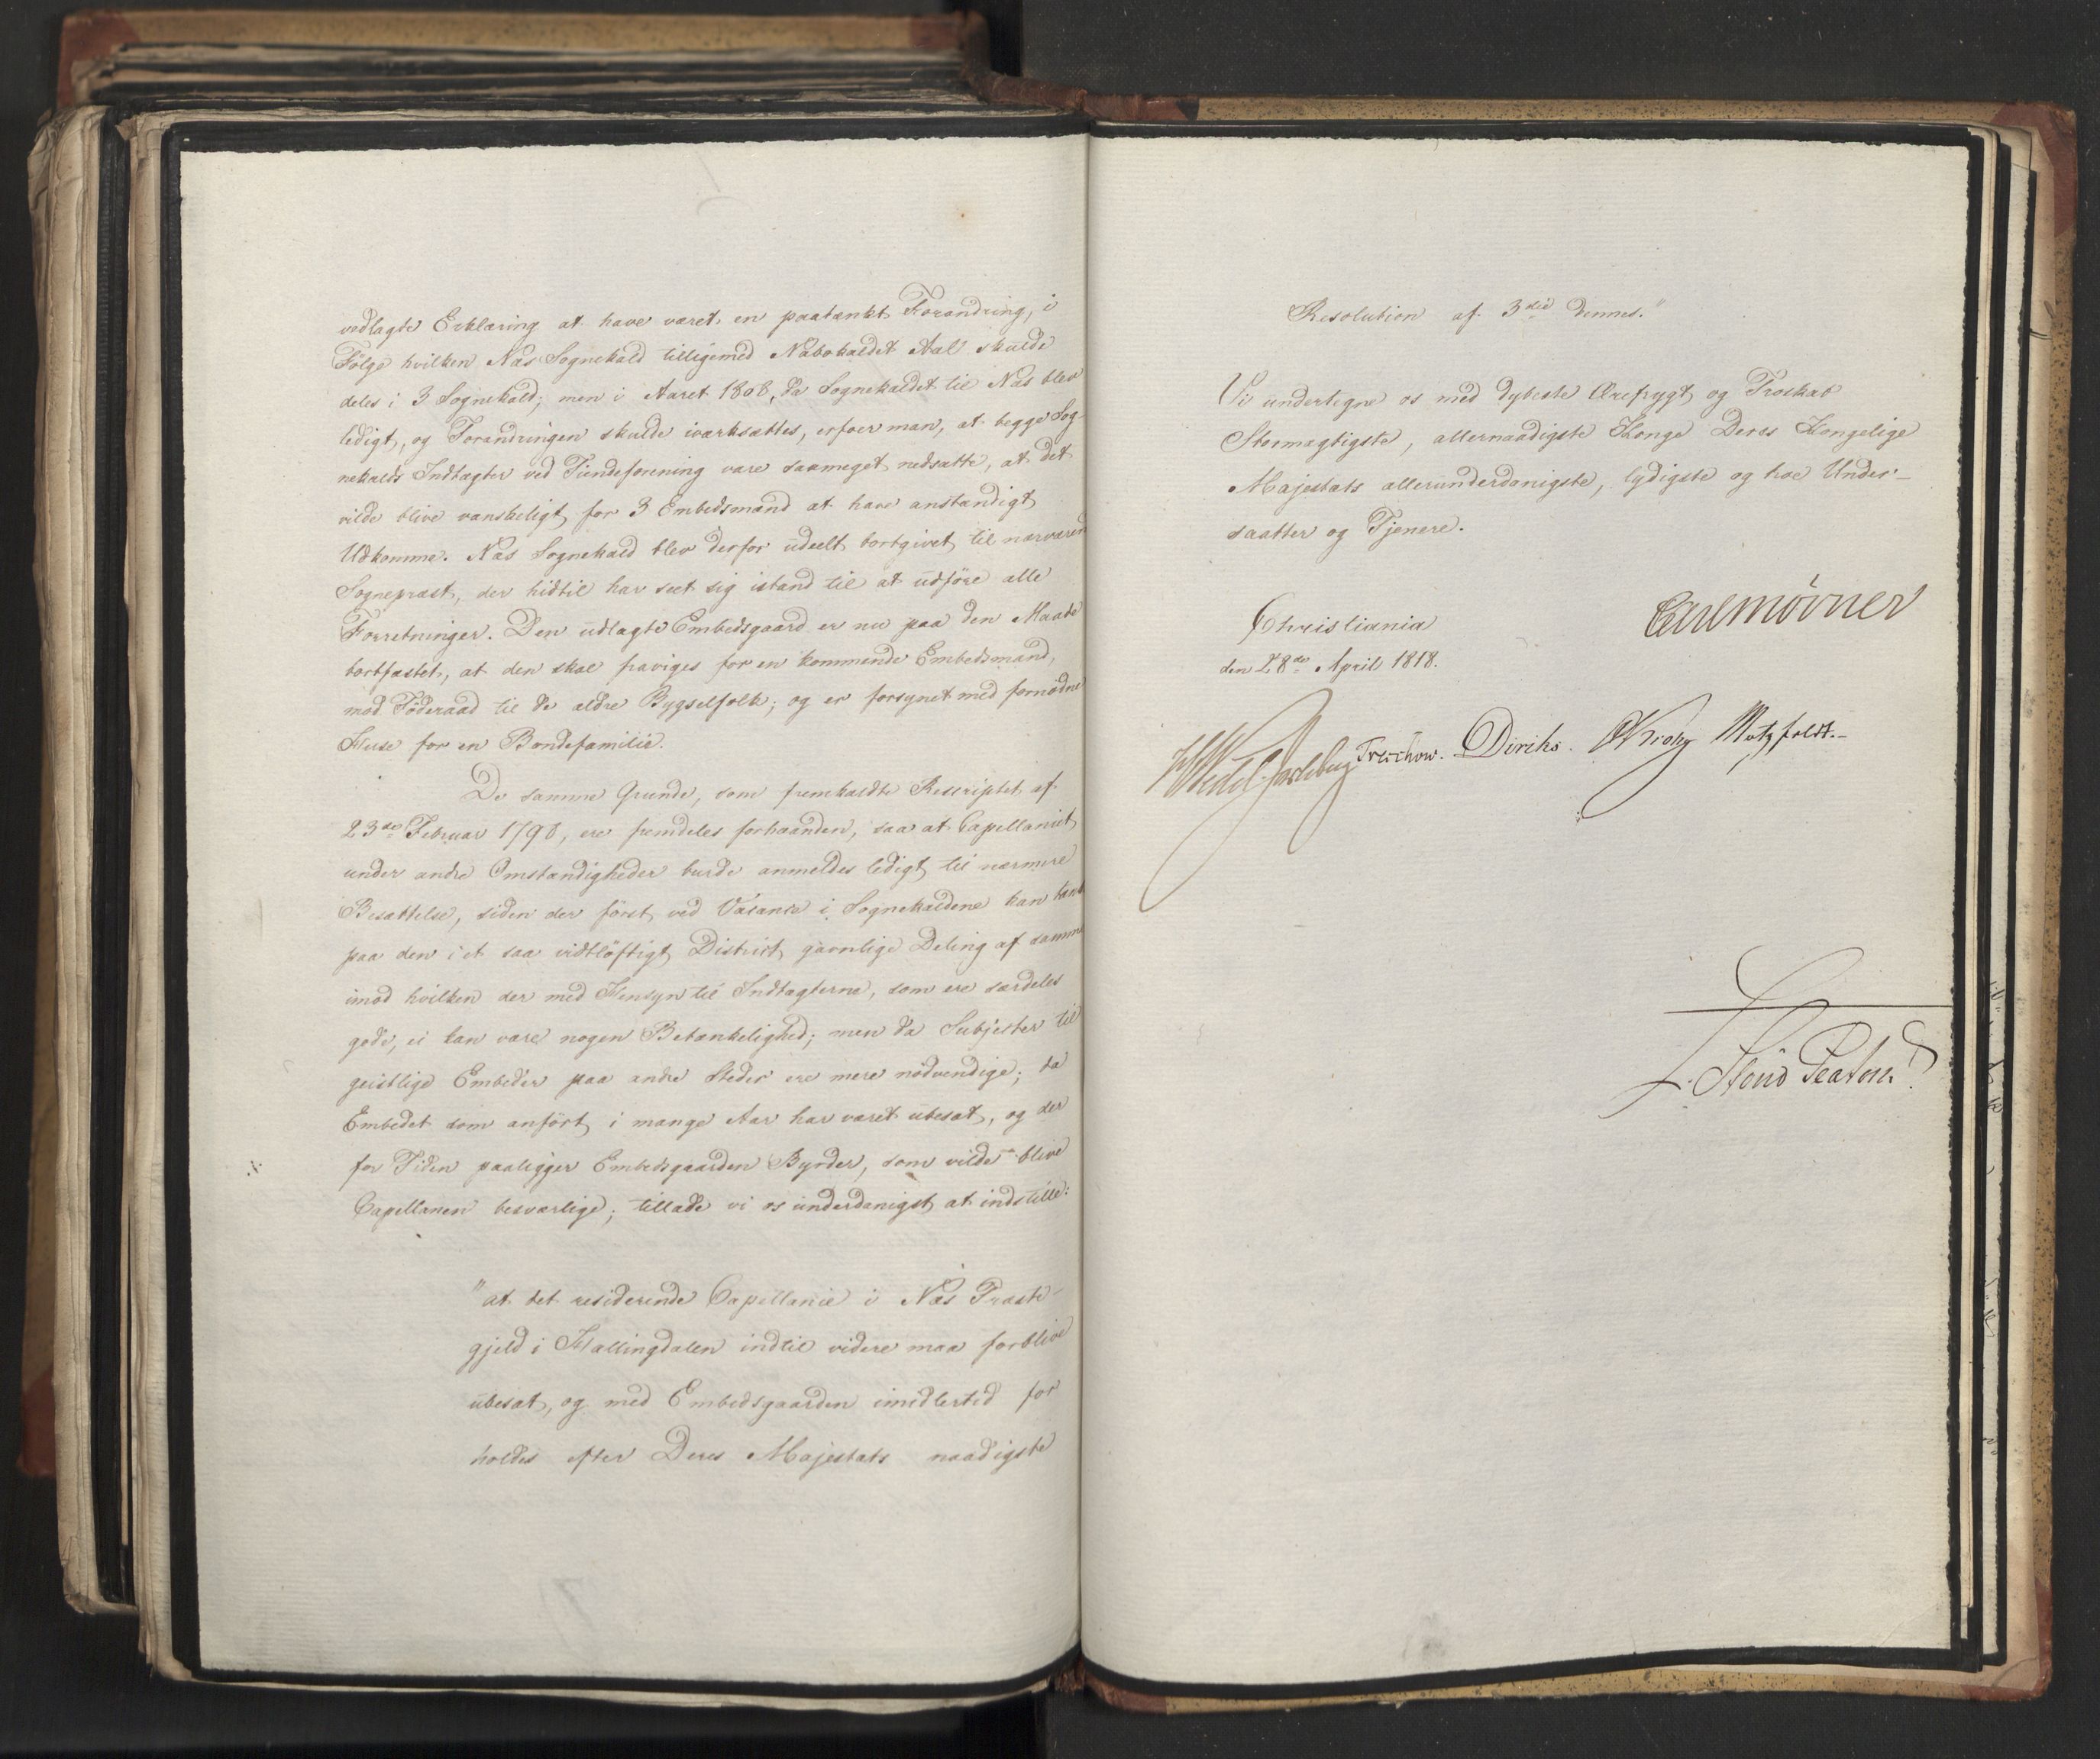 vedlagte Erklæring at have været en paatænkt Forandring, i
Følge hvilken Næs Sognekald tilligemed Nabokaldet Aal skulde
deles i 3 Sognekald; men i Aaret 1808, da Sognekaldet til Næs blev
ledigt, og Forandringen skulde iværksættes, erfoer man, at begge Sog-
nekalds Indtægter ved Tiendeforening vare saameget nedsatte, at det
vilde blive vanskeligt for 3 Embedsmænd at have anstændigt
Udkomme. Næs Sognekald blev derfor udeelt bortgivet til nærværend
Sognepræst, der hidtil har seet sig istand til at udføre alle
Forretninger. Den udlagte Embedsgaard er nu paa den Maade
bortfæstet, at den skal fraviges for en kommende Embedsmand,
mod Føderaad til de ældre Bygselfolk; og er forsynet med fornødne
Huse for en Bondefamilie.
De samme Grunde, som fremkaldte Rescriptet af
23de Februar 1790, ere fremdeles forhaanden, saa at Capellaniet
under andre Omstændigheder burde anmeldes ledigt til nærmere
Besættelse, siden der først ved Vacance i Sognekaldene kan tænk
paa den i et saa vidtløftigt District gavnlige Deling af samme
imod hvilken der med Hensyn til Indtægterne, som ere særdeles
gode, ei kan være nogen Betænkelighed; men da Subjecter til
geistlige Embeder paa andre Steder ere mere nødvendige; da
Embedet som anført i mange Aar har været ubesat, og der
for Tiden paaligger Embedsgaarden Byrder, som vilde blive
Capellanen besværlige; tillade vi os underdanigst at indstille:
"at det residerende Capellanie i Næs Præste-
gjeld i Hallingdalen indtil videre maa forblive
ubesat, og med Embedsgaarden imidlertid for
holdes efter Deres Majestæts naadigste
Resolution af 3die dennes."
Vi undertegne os med dybeste Ærefrygt og Troskab
Stormægtigste, allernaadigste Konge Deres Kongelige
Majestæts allerunderdanigste, lydigste og troe Under-
saatter og Tjenere.
Christiania
den 28de April 1818.
Carl Mörner
HWedel Jarlsberg Treschow. Diriks. Krohg Motzfeldt.